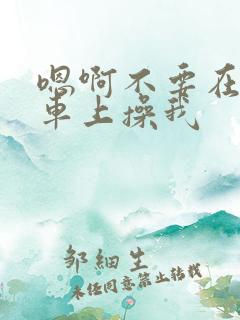 嗯啊不要在
車上操我
邹細生
未经同意禁止转载